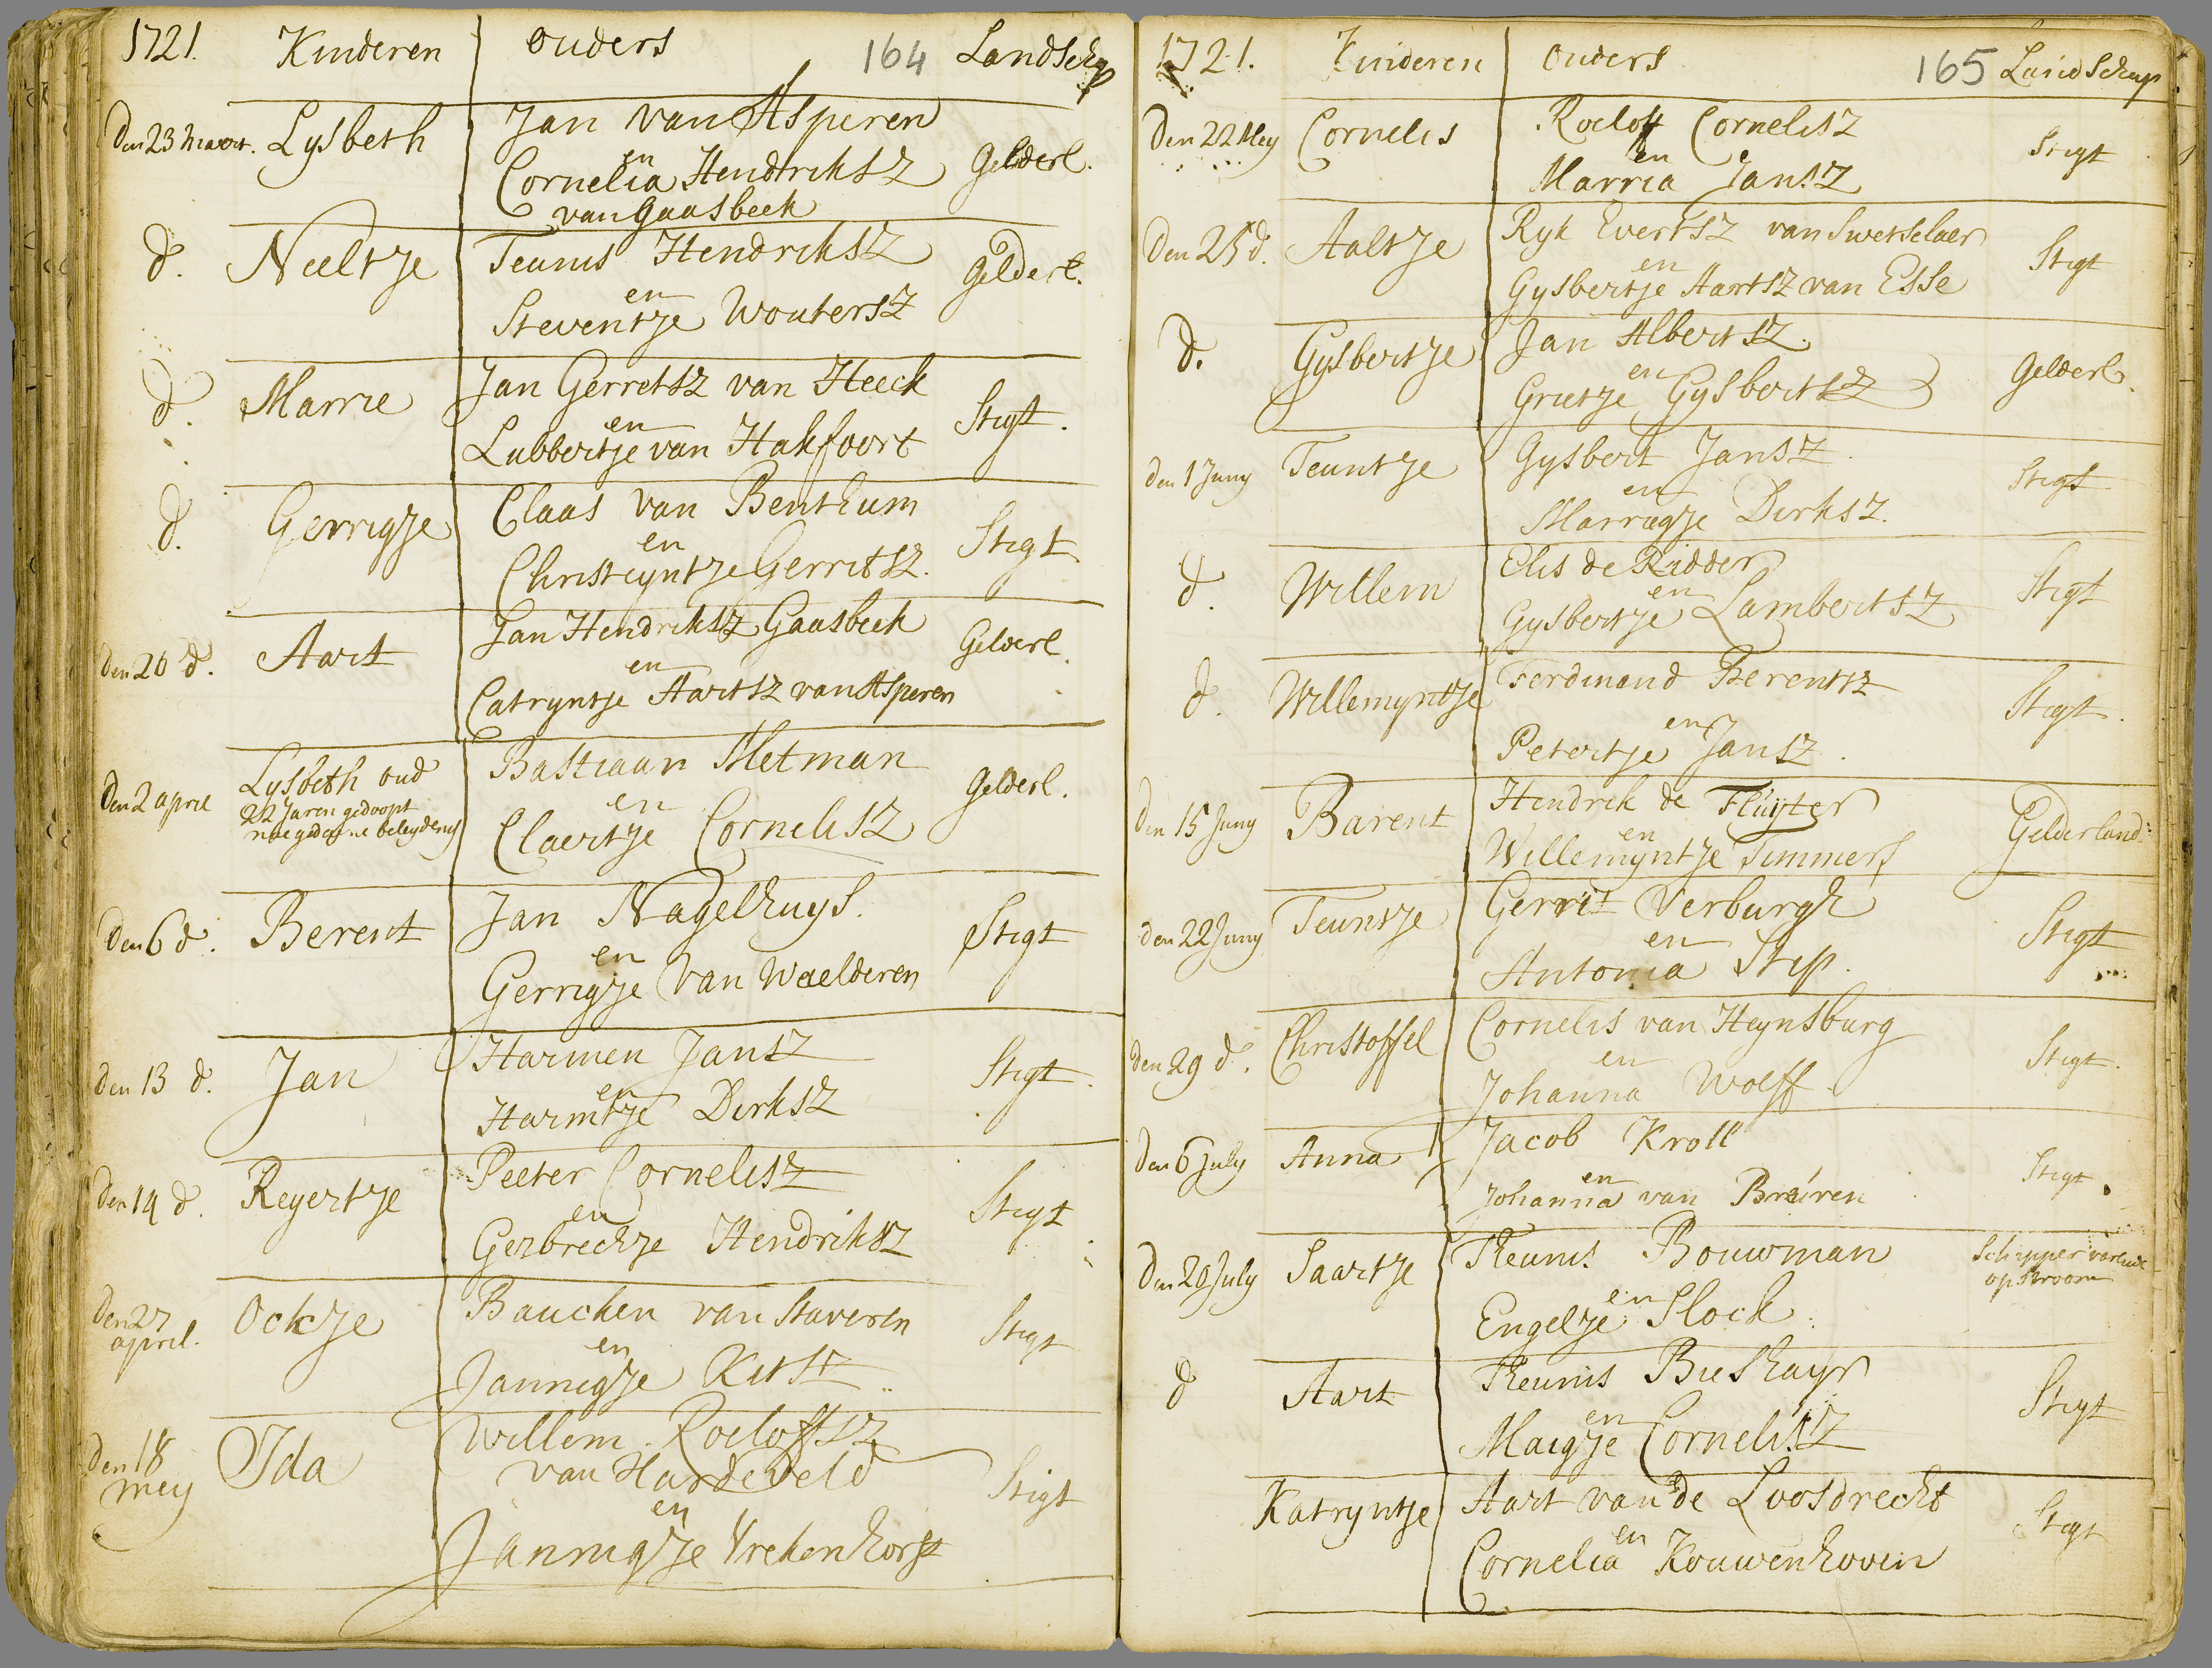 1721. Kinderen ouders 164 Landschap
Den 23 Maart. Lysbeth Jan van Asperen
en
Cornelia Hendriksz Gelderl.
van Gaasbeek
d. Neeltje Teunis Hendriksz Gelderl.
en
Steventje Woutersz
d. Marrie Jan Gerretsz van Heeck Stigt.
en
Lubbertje van Hakfoort
d. Gerrigje Claas van Benthum Stigt
en
Christeyntje Gerritsz.
Den 26 d. Aart Jan Hendriksz Gaasbeek Gelderl.
en
Catryntje Aartsz van Asperen
Den 2 april Lysbeth oud Bastiaan Metman Gelderl.
22 Jaren gedoopt en
nae gedaene belydenis Claertje Cornelisz
Den 6 d. Berent Jan Nagelhuys. Stigt
en
Gerrigje van Waelderen
Den 13 d. Jan Harmen Jansz Stigt.
en
Harmtje Dirksz
Den 14 d. Reyertje Peeter Cornelisz Stigt
en
Gerbrechje Hendriksz
Den 27 Ockje Bauchen van Staveren Stigt
april. en
Jannigje Kitsz
Den 18 Ida Willem Roeloffsz Stigt
mey van Hardeveld
en
Jannigje Vrekenhorst
1721. Kinderen ouders 165 Landschap
Den 22 Mey Cornelis Roeloff Cornelisz Stigt
en
Marria Jansz
Den 25 d. Aaltje Ryk Evertsz van Swetselaer Stigt
en
Gysbertje Aartsz van Esse
d. Gysbertje Jan Albertsz. Gelderl.
en
Grietje Gysbertsz
den 1 Juny Teuntje Gysbert Jansz. Stigt
en
Marrigje Dirksz.
d. Willem Elis de Ridder Stigt
en
Gysbertje Lambertsz
d. Willemyntje Ferdinand Berentsz Stigt.
en
Petertje Jansz.
Den 15 Juny Barent Hendrik de Fluyter Gelderland
en
Willemyntje Timmers
den 22 Juny Teuntje Gerrit Verburgh Stigt
en
Antonia Stip.
den 29 d. Christoffel Cornelis van Heynsburg Stigt.
en
Johanna Wolff.
Den 6 July Anna Jacob Kroll Stigt.
en
Johanna van Bruren
Den 20 July Saartje Theunis Bouwman Schipper varende
en op stroom
Engeltje Slock.
d Aart Theunis Bieshaar Stigt
en
Maigje Cornelisz
Katryntje Aart van de Loosdrecht Stigt
en
Cornelia Kouwenhoven